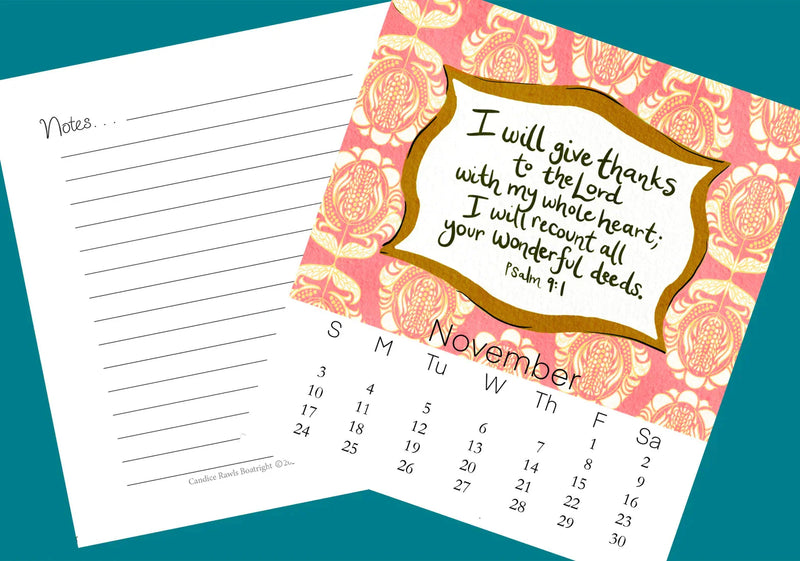 Notes. . . .
Candice Rawls Boatright © 20
I will give thanks
to the Lord
with my whole heart;
I will recount all
your wonderful deeds.
Psalm 9:1
November
S M Tu W Th F Sa
1 2
3 4 5 6 7 8 9
10 11 12 13 14 15 16
17 18 19 20 21 22 23
24 25 26 27 28 29 30